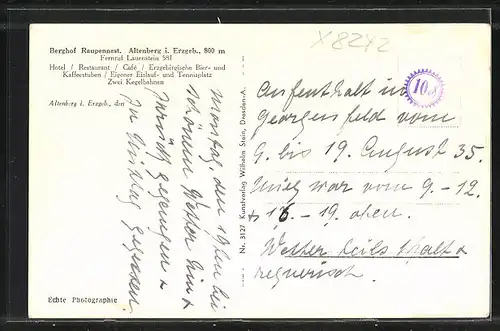 Berghof Raupennest. Altenberg i. Erzgeb., 800 m
Fernruf Lauenstein 581
Hotel / Restaurant / Café / Erzgebirgische Bier- und
Kaffeestuben / Eigener Eislauf- und Tennisplatz
Zwei Kegelbahnen
Altenberg i. Erzgeb., den
Montag, den 19ten bei
schönem Wetter hin &
zurück gegangen &
zu Mittag gegessen.
Echte Photographie
Nr. 3127 Kunstverlag Wilhelm Stein, Dresden-A.
X8242
10.-
Aufenthalt in
Georgenfeld vom
9. bis 19. August 35.
war vom 9.-12.
+ 16.-19. oben.
Wetter teils kalt &
regnerisch.